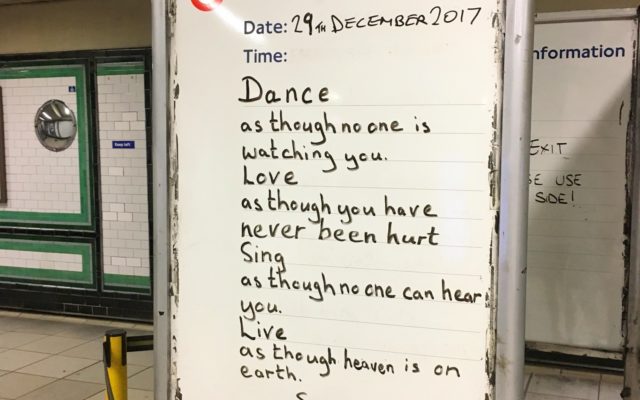 Date: 29TH DECEMBER 2017
Time:
Dance
as though no one is
watching you.
Love
as though you have
never been hurt
Sing
as though no one can hear
you.
Live
as though heaven is on
earth.
nformation
EXIT
SE USE
SIDE!
Keep left